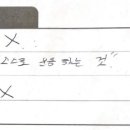 X
스스로 운동 하는 것"
X